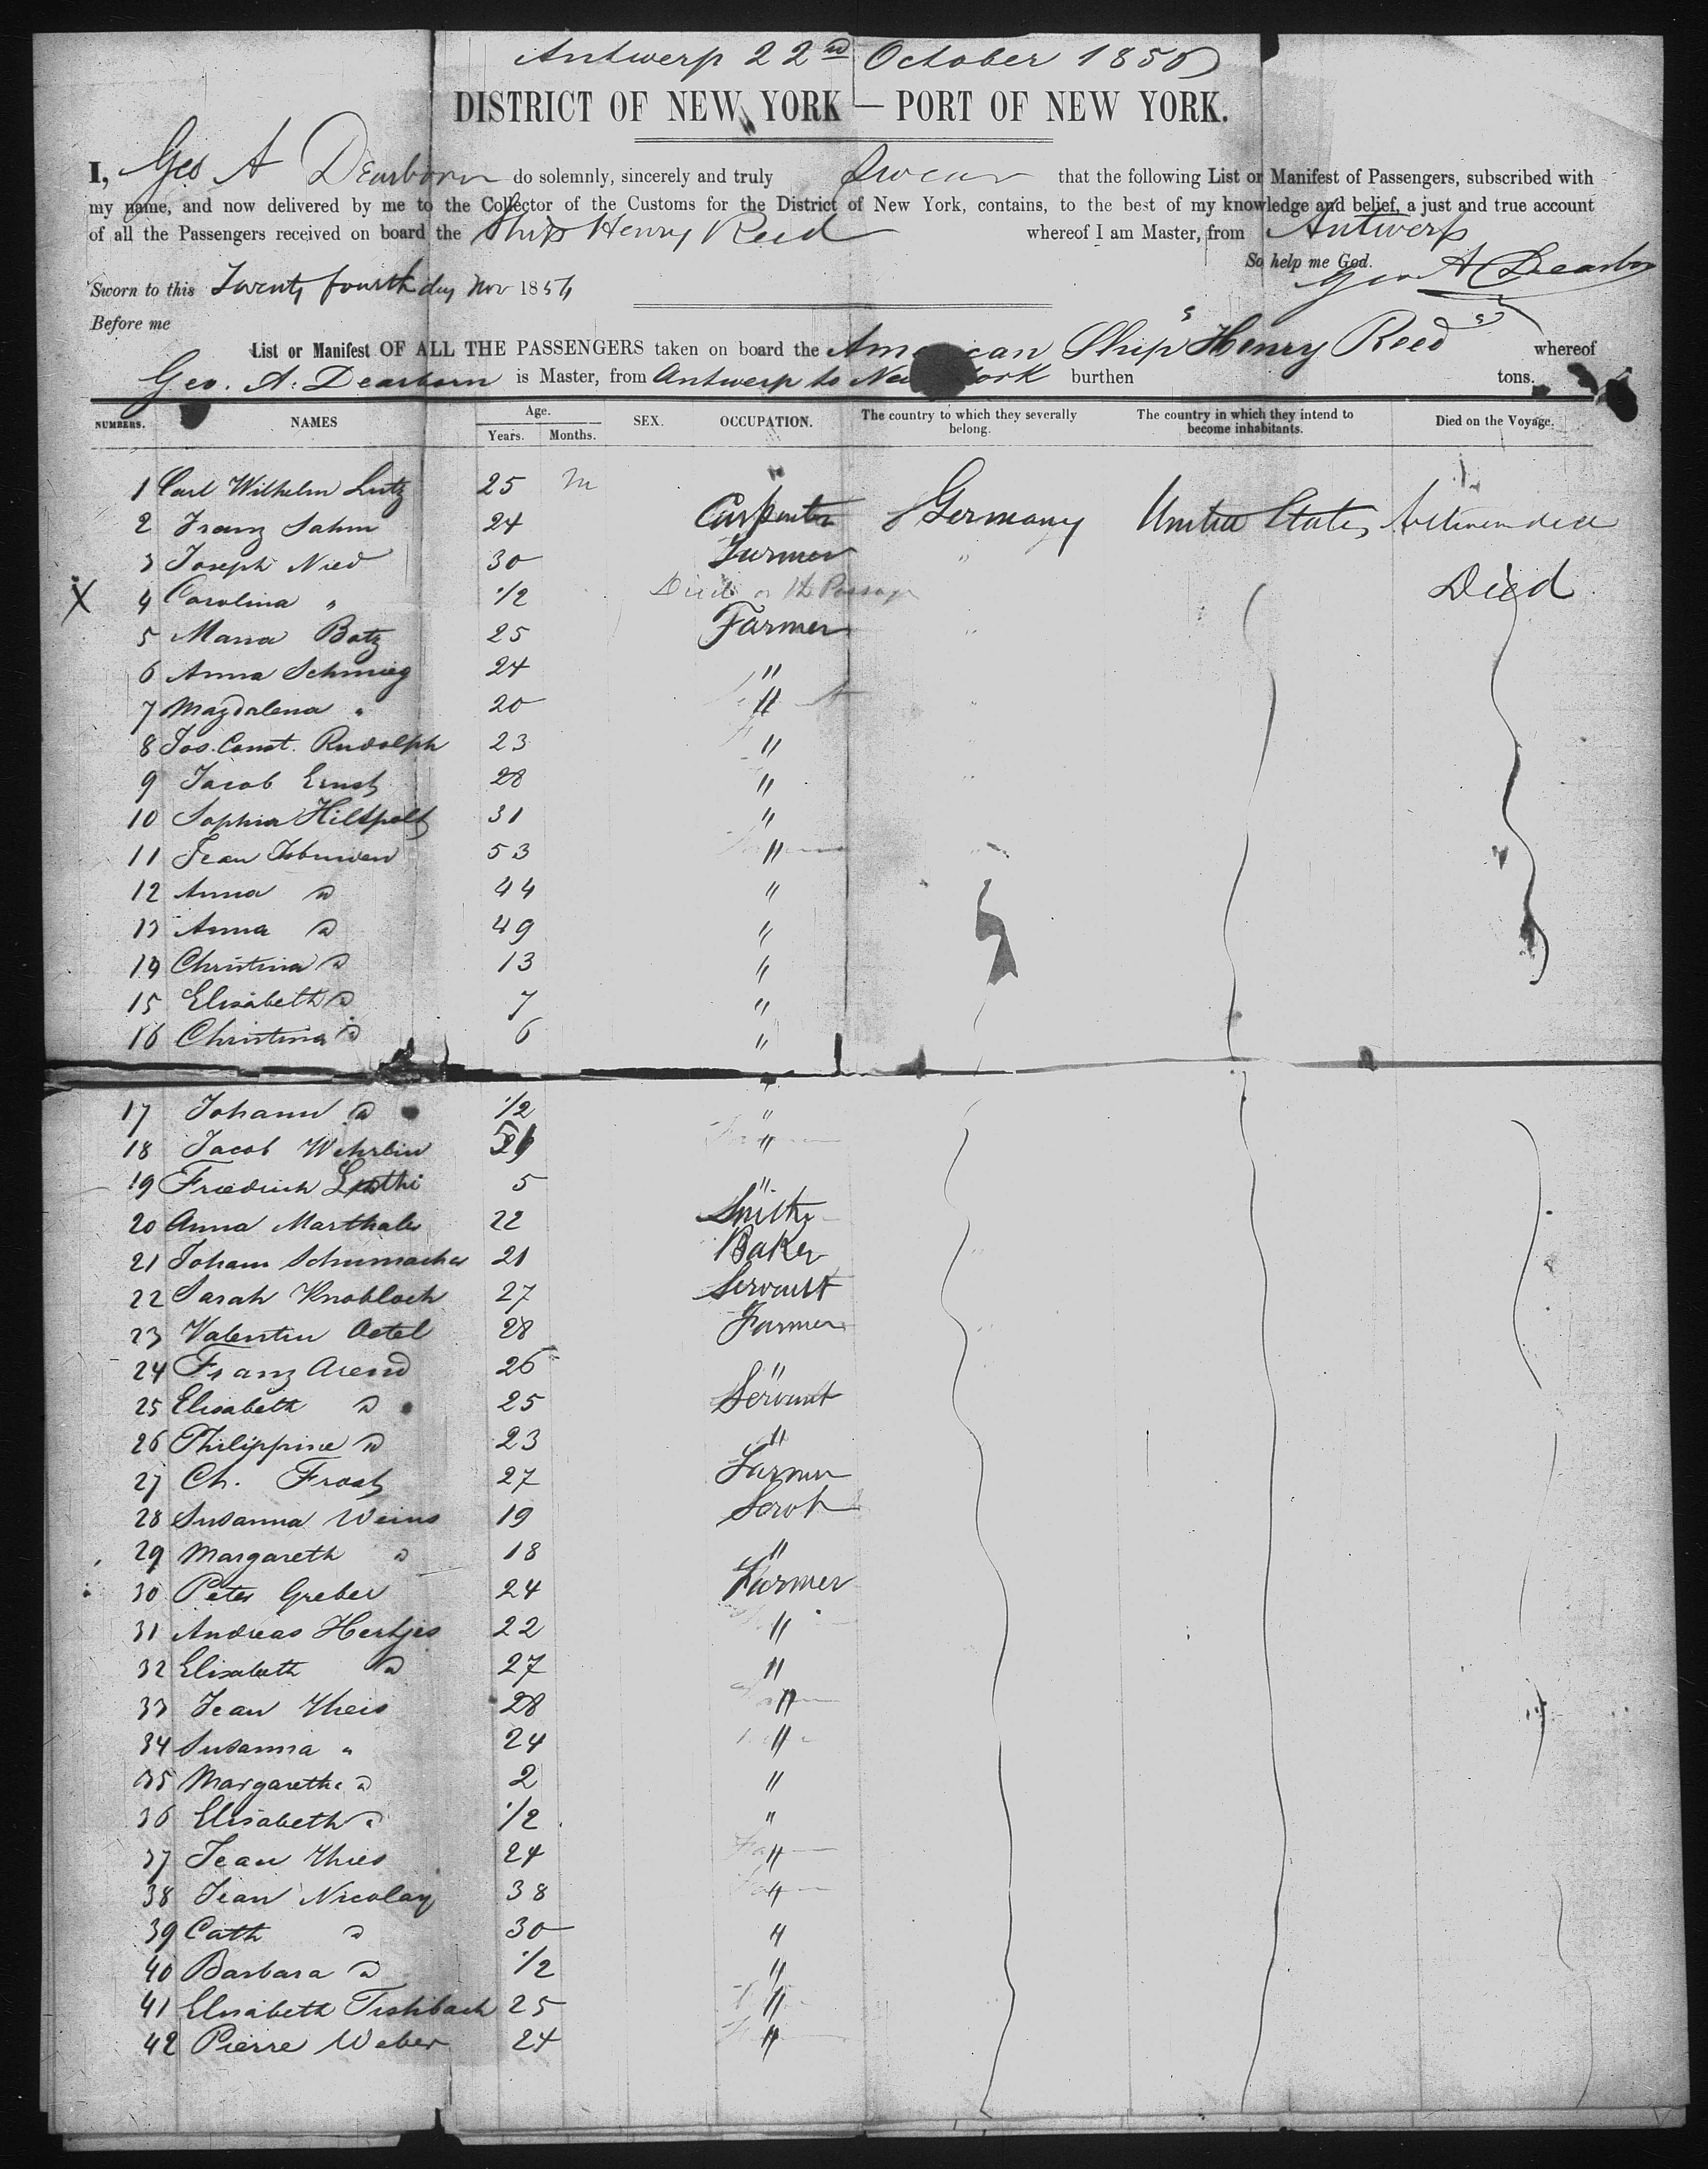 Antwerp 22nd October 1856
DISTRICT OF NEW YORK — PORT OF NEW YORK.
I, Geo A Dearborn do solemnly, sincerely and truly Swear that the following List or Manifest of Passengers, subscribed with
my name, and now delivered by me to the Collector of the Customs for the District of New York, contains, to the best of my knowledge and belief, a just and true account
of all the Passengers received on board the Ship Henry Reed whereof I am Master, from Antwerp
So help me God.
Geo A Dearborn
Sworn to this Twenty fourth day Nov 1856
Before me
List or Manifest OF ALL THE PASSENGERS taken on board the American Ship "Henry Reed" whereof
Geo. A. Dearborn is Master, from Antwerp to New York burthen tons.
NUMBERS. NAMES Age. Years. Months. SEX. OCCUPATION. The country to which they severally belong. The country in which they intend to become inhabitants. Died on the Voyage.
1 Carl Wilhelm Lutz 25 m
2 Franz Sahm 24 Carpenter Germany United States
3 Joseph Nied 30 Farmer "
X 4 Carolina " 1/2 Died on the Passage Died
5 Maria Botz 25 Farmer "
6 Anna Schmieg 24 "
7 Magdalena " 20 "
8 Jos. Const. Rudolph 23 "
9 Jacob Ernst 28 "
10 Sophia Hiltpolt 31 "
11 Jean 53 "
12 Anna do 44 "
13 Anna do 49 "
14 Christina do 13 "
15 Elisabeth do 7 "
16 Christina do 6 "
17 Johann do 1/2 "
18 Jacob Wehrlin "
19 Friedrich Luthi 5 "
20 Anna Marthaler 22 Smith
21 Johann Schumacher 21 Baker
22 Sarah Knobloch 27 Servant
23 Valentin Oetel 28 Farmer
24 Franz Arend 26 "
25 Elisabeth do 25 Servant
26 Philippine do 23 "
27 Ch. Frost 27 Farmer
28 Susanna Weins 19 Servt
29 Margareth do 18 "
30 Peter Greber 24 Farmer
31 Andreas Hertjes 22 "
32 Elisabeth do 27 "
33 Jean Theis 28 "
34 Susanna " 24 "
35 Margaretha do 2 "
36 Elisabeth do 1/2 "
37 Jean Thies 24 "
38 Jean Nicolay 38 "
39 Cath do 30 "
40 Barbara do 1/2 "
41 Elisabeth Tishbach 25 "
42 Pierre Weber 24 "